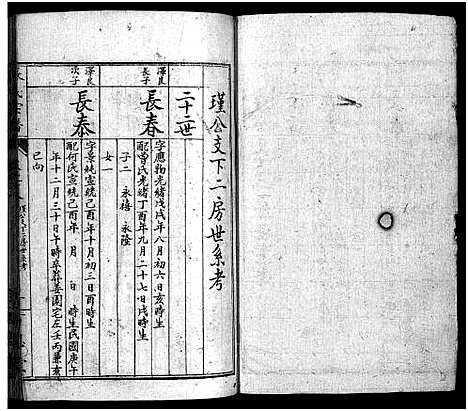 瑾公支下二房世系考
二十二世
澤良
長子
長春
字應物光緒戊戌年八月初六日亥時生
配曾氏光緒丁酉年九月二十七日戌時生
子二 永禧 永隆
女一
澤良
次子
長泰
字景純宣統己酉年十月初三日酉時生
配何氏宣統己酉年 月 日 時生民國庚午
年十二月三十日午時卒葬美園宅左壬丙兼亥
巳向